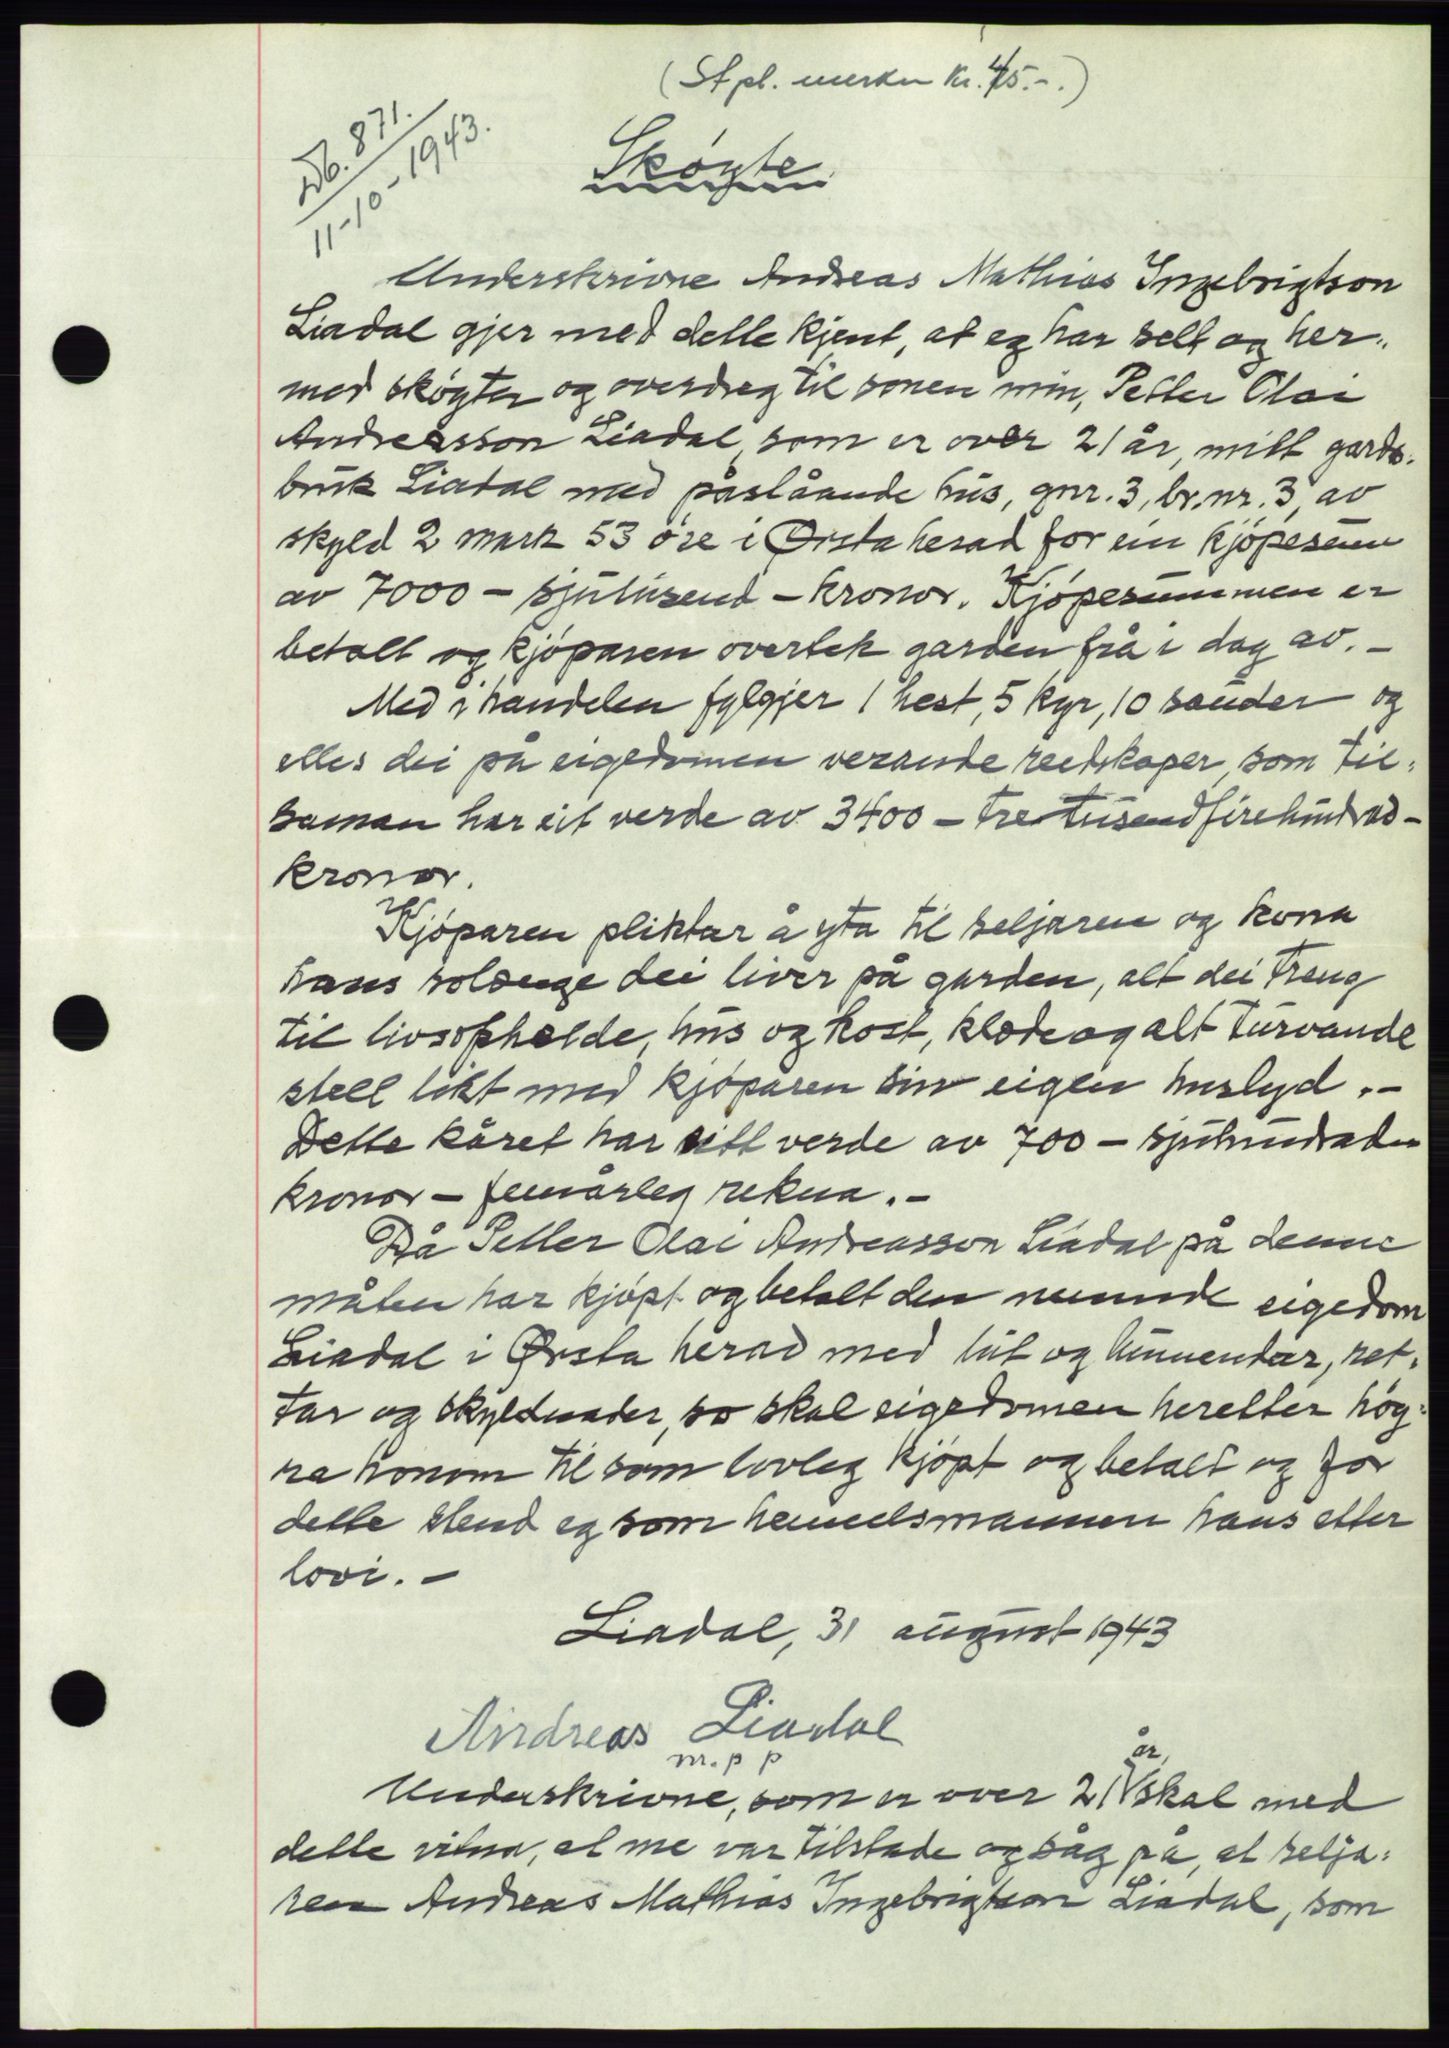 (Stpl. merker kr. 45.-.)
Db. 871.
11-10-1943.
Skøyte
Underskrivne Andreas Mathias Ingebrigtson
Liadal gjer med dette kjent, at eg har selt og her-
med skøyter og overdreg til sonen min, Petter Olai
Andreasson Liadal, som er over 21 år, mitt gards-
bruk Liadal med påståande hus, gnr. 3, br.nr. 3, av
skyld 2 mark 53 øre i Ørsta herad for ein kjøpesum
av 7000 - sjutusend - kronor. Kjøpesummen er
betalt og kjøparen overtek garden frå i dag av. -
Med i handelen fylgjer 1 hest, 5 kyr, 10 sauder og
elles dei på eigedomen verande reidskaper, som til-
saman har eit verde av 3400 - tretusendfirehundrad -
kronor.
Kjøparen pliktar å yta til seljaren og kona
hans solenge dei liver på garden, alt dei treng
til livsophelde, hus og kost, klede og alt turvande
stell likt med kjøparen sin eigen huslyd. -
Dette kåret har eitt verde av 700 - sjuhundrade
kronor - femårleg rekna. -
Då Petter Olai Andreasson Liadal på denne
måten har kjøpt og betalt den nemnde eigedom
Liadal i Ørsta herad med lut og lunnendar, ret-
tar og skyldnader, so skal eigedomen heretter høy-
ra honom til som lovleg kjøpt og betalt og for
dette stend eg som heimelsmannen hans etter
lovi. -
Liadal, 31 august 1943
Andreas Liadal
m. p p
år,
Underskrivne, som er over 21 skal med
dette vitna, at me var tilstade og såg på, at selja-
ren Andreas Mathias Ingebrigtson Liadal, som